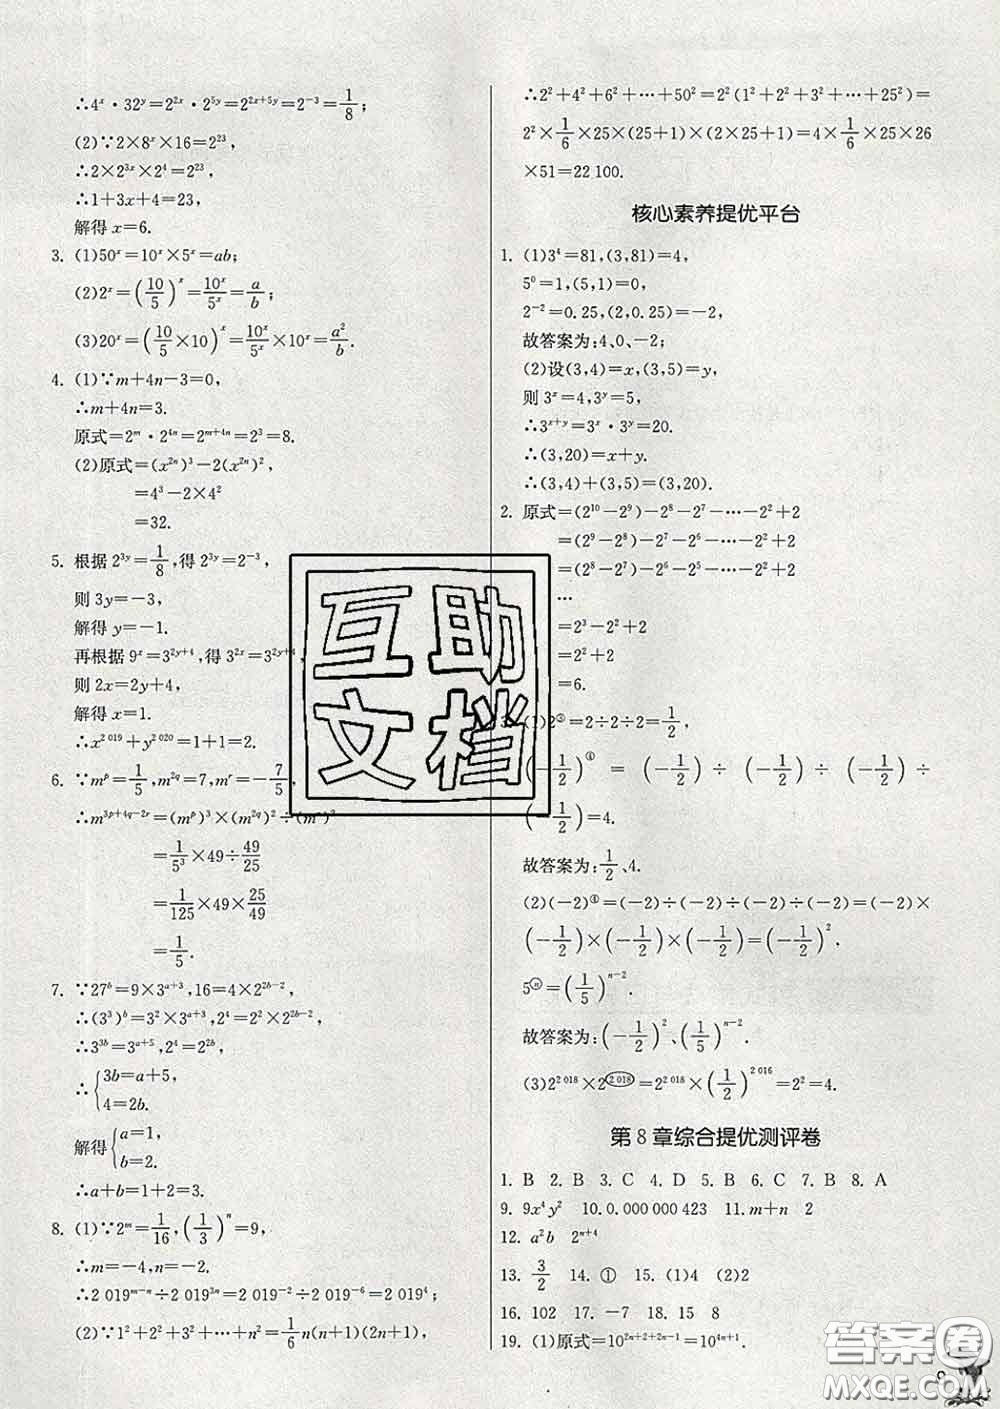 ∴4^x·32^y=2^{2x}·2^{5y}=2^{2x+5y}=2^{-3}=1/8;
(2)∵2×8^x×16=2^{23},
∴2×2^{3x}×2^4=2^{23},
∴1+3x+4=23,
解得 x=6.
3. (1)50^x=10^x×5^x=ab;
(2)2^x=(10/5)^x=10^x/5^x=a/b;
(3)20^x=(10/5×10)^x=10^x/5^x×10^x=a^2/b.
4. (1)∵m+4n-3=0,
∴m+4n=3.
原式=2^m·2^{4n}=2^{m+4n}=2^3=8.
(2)原式=(x^{2n})^3-2(x^{2n})^2,
=4^3-2×4^2
=32.
5. 根据 2^{3y}=1/8,得 2^{3y}=2^{-3},
则 3y=-3,
解得 y=-1.
再根据 9^x=3^{2y+4},得 3^{2x}=3^{2y+4},
则 2x=2y+4,
解得 x=1.
∴x^{2 019}+y^{2 020}=1+1=2.
6. ∵m^p=1/5,m^{2q}=7,m^r=-7/5,
∴m^{3p+4q-2r}=(m^p)^3×(m^{2q})^2÷(m^r)^2
=1/5^3×49÷49/25
=1/125×49×25/49
=1/5.
7. ∵27^b=9×3^{a+3},16=4×2^{2b-2},
∴(3^3)^b=3^2×3^{a+3},2^4=2^2×2^{2b-2},
∴3^{3b}=3^{a+5},2^4=2^{2b},
∴{3b=a+5,
4=2b.
解得{a=1,
b=2.
∴a+b=1+2=3.
8. (1)∵2^m=1/16,(1/3)^n=9,
∴m=-4,n=-2.
∴2 019^{m-n}÷2 019^{3n}=2 019^{-2}÷2 019^{-6}=2 019^4;
(2)∵1^2+2^2+3^2+…+n^2=1/6n(n+1)(2n+1),
∴2^2+4^2+6^2+…+50^2=2^2(1^2+2^2+3^2+…+25^2)=
2^2×1/6×25×(25+1)×(2×25+1)=4×1/6×25×26
×51=22 100.
核心素养提优平台
1. (1)3^4=81,(3,81)=4,
5^0=1,(5,1)=0,
2^{-2}=0.25,(2,0.25)=-2,
故答案为:4、0、-2;
(2)设(3,4)=x,(3,5)=y,
则 3^x=4,3^y=5,
∴3^{x+y}=3^x·3^y=20.
∴(3,20)=x+y.
∴(3,4)+(3,5)=(3,20).
2. 原式=(2^{10}-2^9)-2^8-2^7-…-2^2+2
=(2^9-2^8)-2^7-2^6-…-2^2+2
=(2^8-2^7)-2^6-2^5-…-2^2+2
…
=2^3-2^2+2
=2^2+2
=6.
3. (1)2^③=2÷2÷2=1/2,
(-1/2)^④=(-1/2)÷(-1/2)÷(-1/2)÷
(-1/2)=4.
故答案为:1/2、4.
(2)(-2)^④=(-2)÷(-2)÷(-2)÷(-2)=(-2)×
(-1/2)×(-1/2)×(-1/2)=(-1/2)^2,
5^ⓝ=(1/5)^{n-2}.
故答案为:(-1/2)^2、(1/5)^{n-2}.
(3)2^{2 018}×2^{(2 018)}=2^{2 018}×(1/2)^{2 016}=2^2=4.
第 8 章综合提优测评卷
1. B 2. B 3. C 4. D 5. B 6. C 7. B 8. A
9. 9x^4y^2 10. 0.000 000 423 11. m+n 2
12. a^2b 2^{n+4}
13. 3/2 14. ① 15. (1)4 (2)2
16. 102 17. -7 18. 15 8
19. (1)原式=10^{2n+2+2n-1}=10^{4n+1}.
互助
文档
答案圈
MXQE.COM